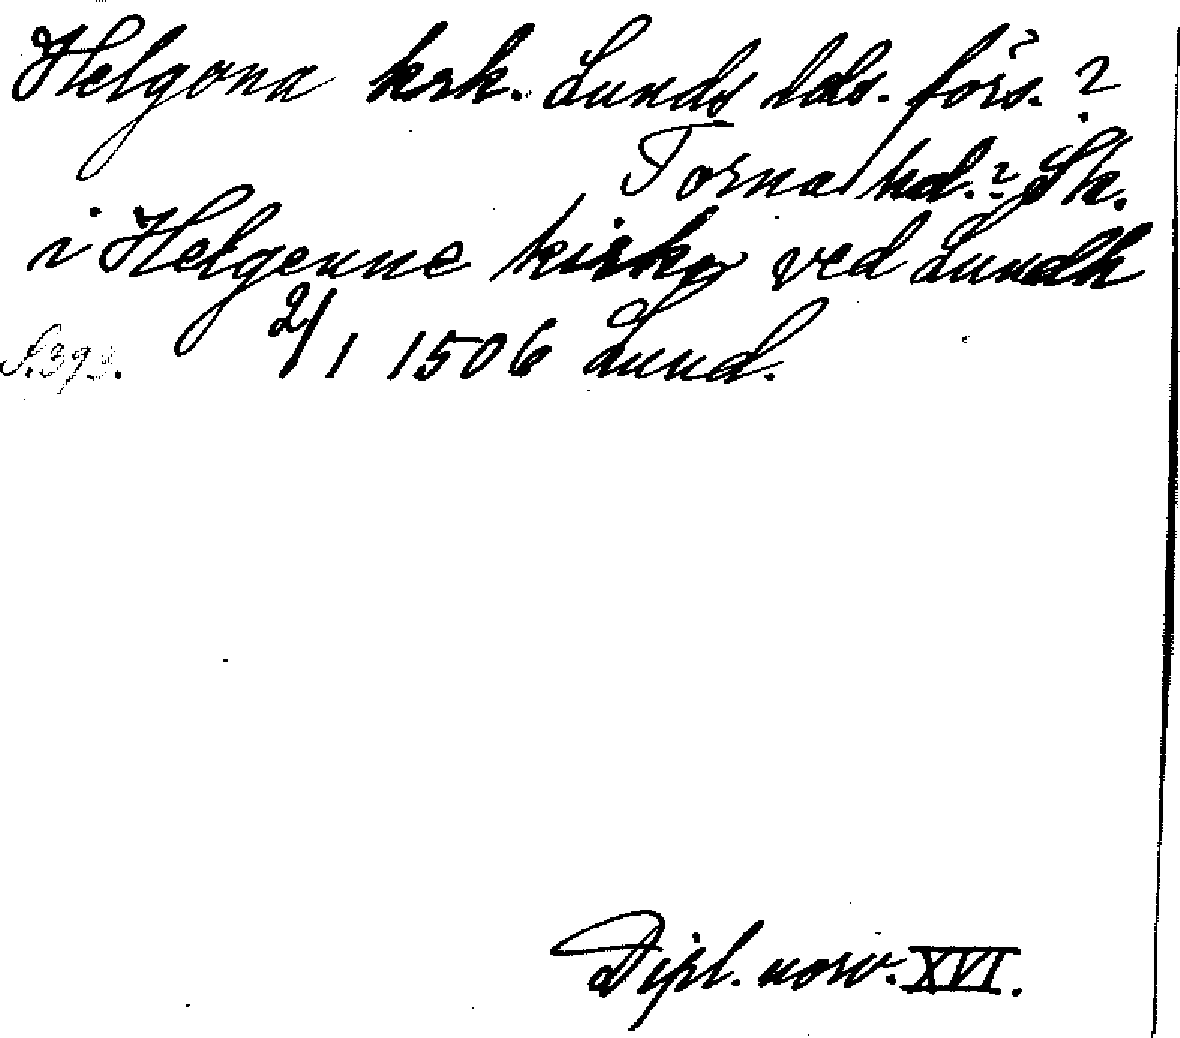 Helgona krk. Lunds lds. förs. ?
Torna hd. ? Sk.
i Helgenne kirke ved Lundh
S. 393. 2/1 1506 Lund.
Dipl. norv. XVI.